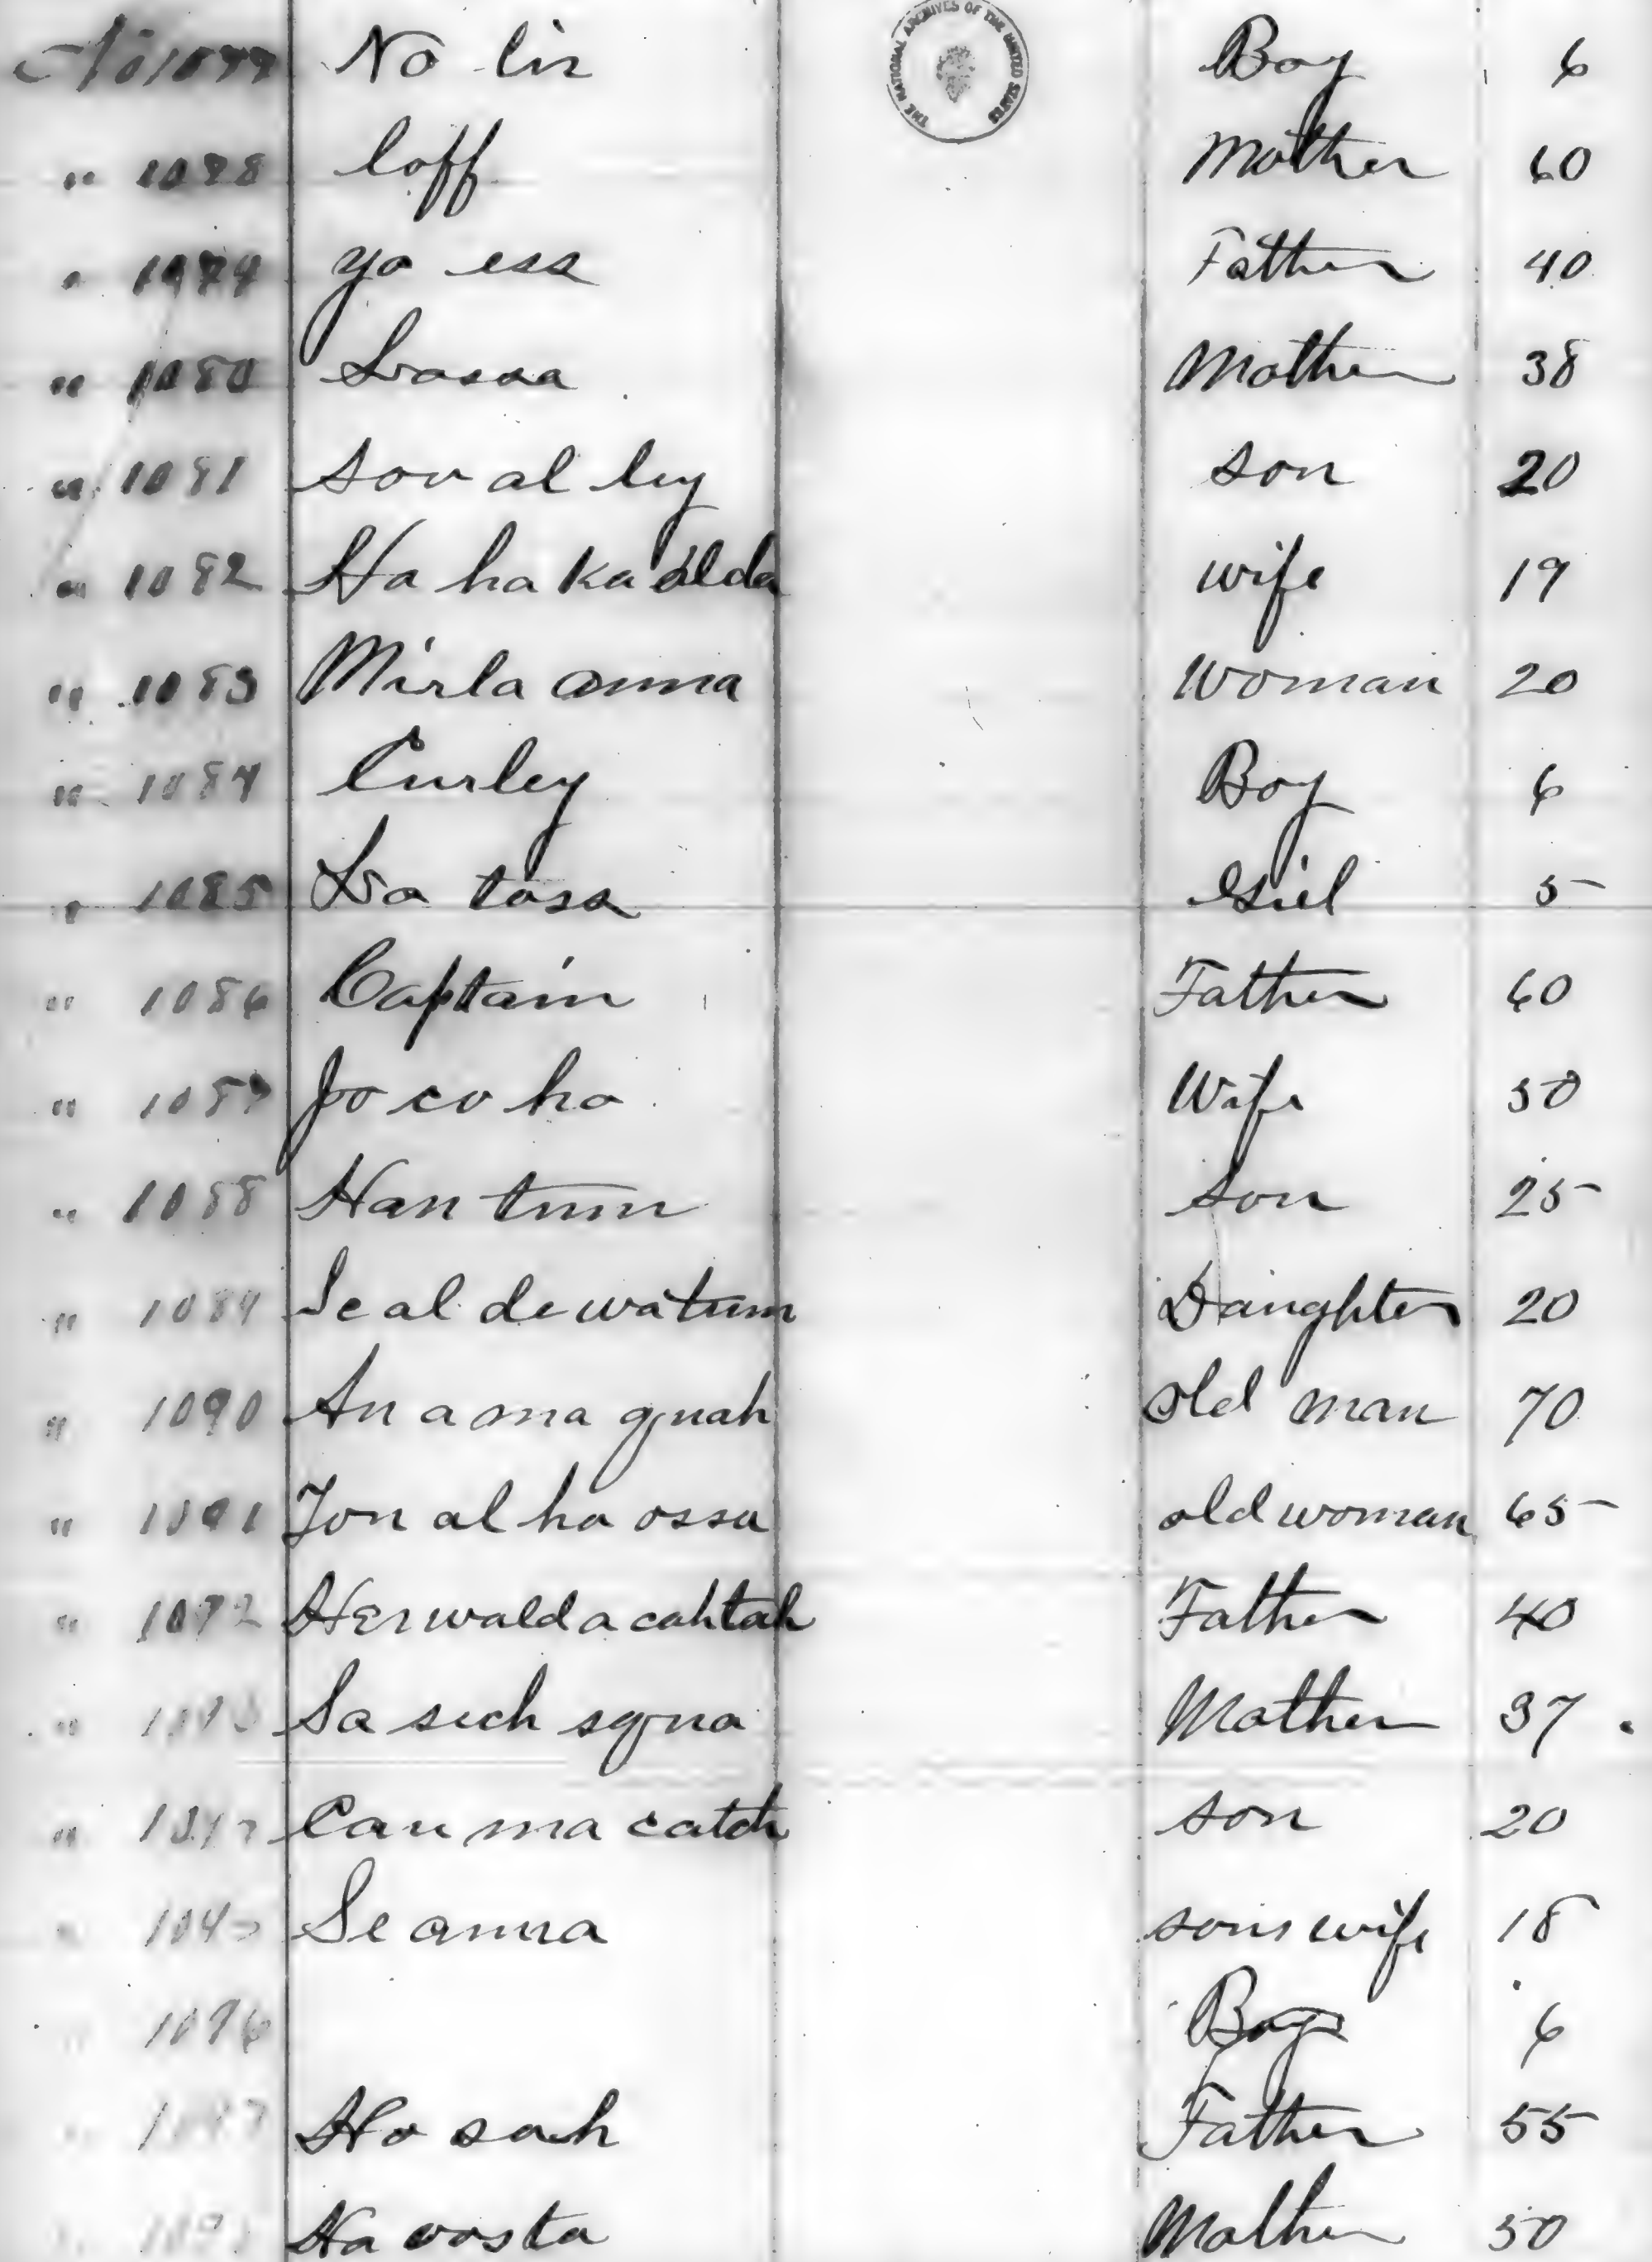 No 1077 No lin Boy 6
THE NATIONAL ARCHIVES OF THE UNITED STATES
" 1078 Coff Mother 60
" 1079 Yo ess Father 40
" 1080 Mother 38
" 1081 Sov al ley son 20
" 1082 Ha ha ka alda wife 19
" 1083 Mirla anna Woman 20
" 1084 Curley Boy 6
" 1085 Girl 5
" 1086 Captain Father 60
" 1087 Jo co ho Wife 50
" 1088 Han tum Son 25
" 1089 Se al de watum Daughter 20
" 1090 An a ma quah old man 70
" 1091 Ton al ha ossa old woman 65
" 1092 Her walda cahtah Father 40
" 1093 Sa such squa Mother 37
" Cau ma catch son 20
" Se anna sons wife 18
1096 Boy 6
1097 Ho sah Father 55
Na vosta Mother 50